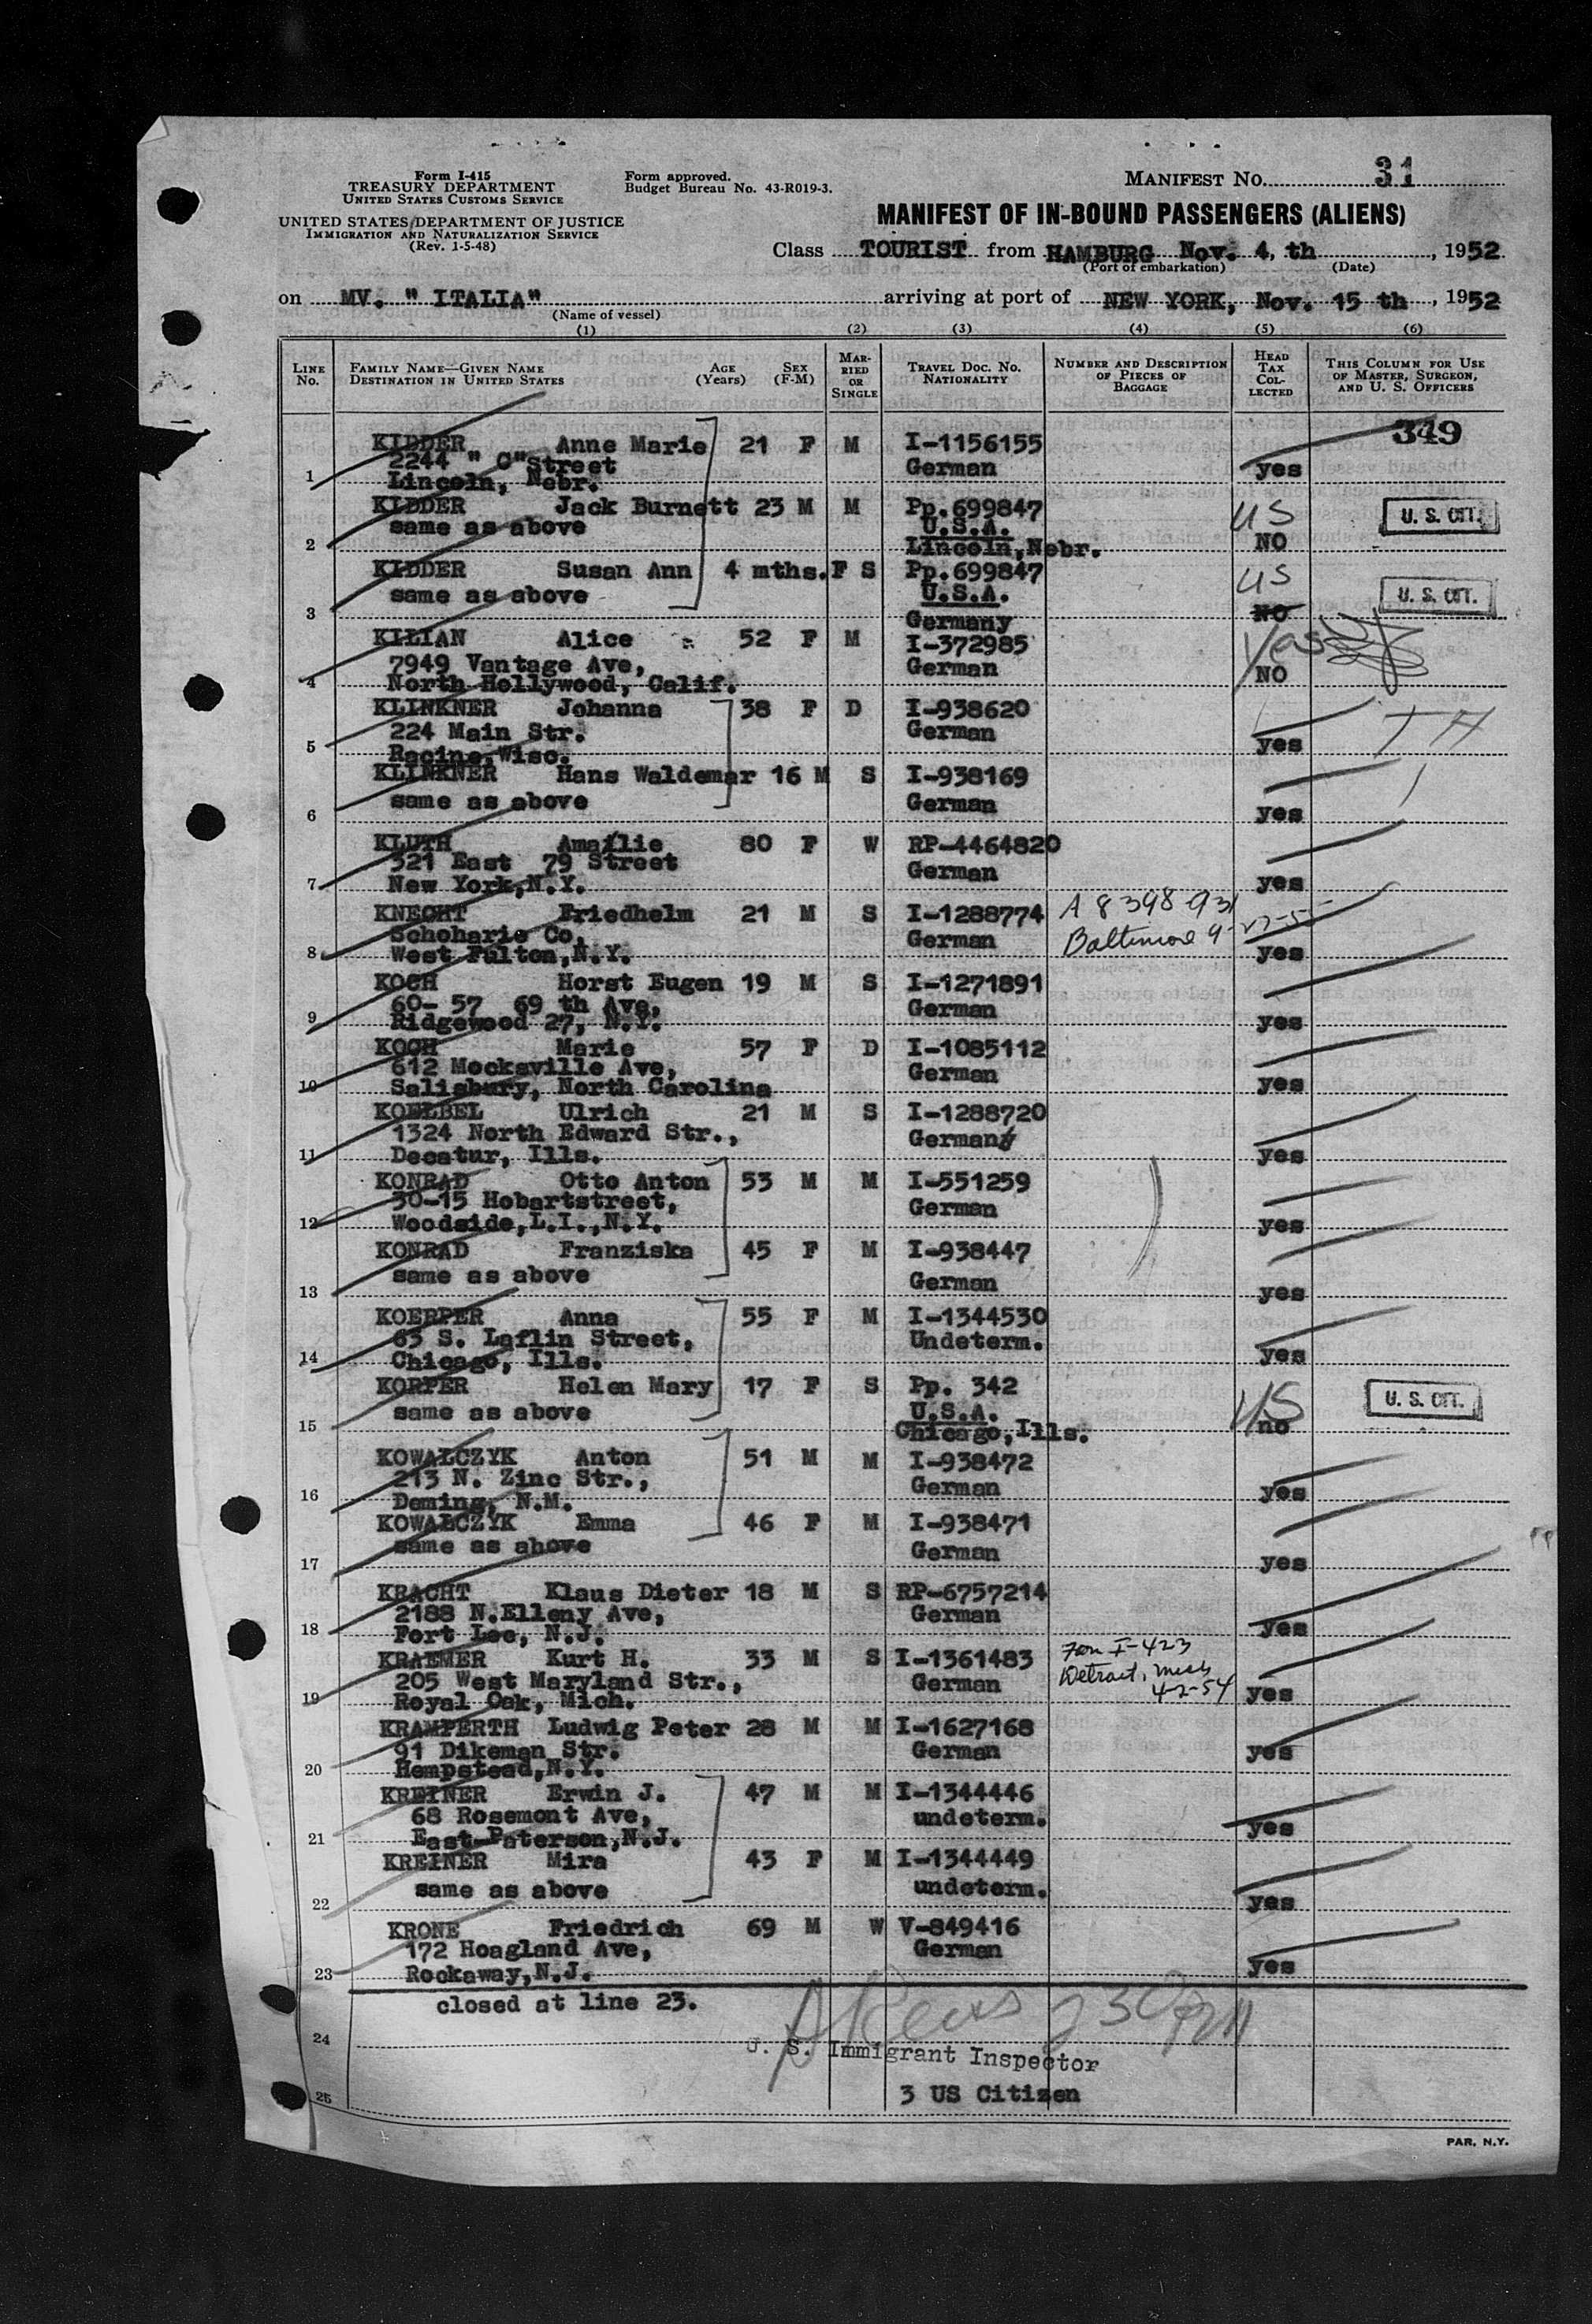 Form I-415
TREASURY DEPARTMENT
UNITED STATES CUSTOMS SERVICE
UNITED STATES DEPARTMENT OF JUSTICE
IMMIGRATION AND NATURALIZATION SERVICE
(Rev. 1-5-48)
Form approved.
Budget Bureau No. 43-R019-3.
MANIFEST NO. 31
MANIFEST OF IN-BOUND PASSENGERS (ALIENS)
Class TOURIST from HAMBURG Nov. 4, th, 1952
(Port of embarkation) (Date)
on MV. " ITALIA" arriving at port of NEW YORK, Nov. 15 th, 1952
(Name of vessel)
(1) (2) (3) (4) (5) (6)
LINE NO.
FAMILY NAME—GIVEN NAME
DESTINATION IN UNITED STATES
AGE (Years)
SEX (F-M)
MARRIED OR SINGLE
TRAVEL DOC. NO.
NATIONALITY
NUMBER AND DESCRIPTION OF PIECES OF BAGGAGE
HEAD TAX COLLECTED
THIS COLUMN FOR USE OF MASTER, SURGEON, AND U. S. OFFICERS
349
KIDDER Anne Marie 21 F M I-1156155
2244 " O" Street German
1 Lincoln, Nebr. yes
KIDDER Jack Burnett 23 M M Pp.699847 US U. S. CIT.
same as above U.S.A.
2 Lincoln,Nebr. NO
KIDDER Susan Ann 4 mths. F S Pp.699847 US
same as above U.S.A. U. S. CIT.
3 Germany NO
KILIAN Alice 52 F M I-372985 Yes
7949 Vantage Ave, German
4 North Hollywood, Calif. NO
KLINKNER Johanna 38 F D I-938620
224 Main Str. German
5 Racine,Wisc. yes
KLINKNER Hans Waldemar 16 M S I-938169
same as above German
6 yes
KLUTH Amalie 80 F W RP-4464820
321 East 79 Street German
7 New York,N.Y. yes
KNECHT Friedhelm 21 M S I-1288774 A 8398 931
Schoharie Co, German Baltimore 9-27-55
8 West Fulton,N.Y. yes
KOCH Horst Eugen 19 M S I-1271891
60- 57 69 th Ave, German
9 Ridgewood 27, N.Y. yes
KOCH Marie 57 F D I-1085112
612 Mocksville Ave, German
10 Salisbury, North Carolina yes
KOELBEL Ulrich 21 M S I-1288720
1324 North Edward Str., German
11 Decatur, Ills. yes
KONRAD Otto Anton 53 M M I-551259
30-15 Hobartstreet, German
12 Woodside,L.I.,N.Y. yes
KONRAD Franziska 45 F M I-938447
same as above German
13 yes
KOERPER Anna 55 F M I-1344530
63 S. Laflin Street, Undeterm.
14 Chicago, Ills. yes
KORPER Helen Mary 17 F S Pp. 342 US U. S. CIT.
same as above U.S.A.
15 Chicago,Ills. no
KOWALCZYK Anton 51 M M I-938472
213 N. Zinc Str., German
16 Deming, N.M. yes
KOWALCZYK Emma 46 F M I-938471
same as above German
17 yes
KRACHT Klaus Dieter 18 M S RP-6757214
2188 N.Elleny Ave, German
18 Fort Lee, N.J. yes
KRAEMER Kurt H. 33 M S I-1361483 Form I-423
205 West Maryland Str., German Detroit, Mich
19 Royal Oak, Mich. 4-2-54 yes
KRAMPERTH Ludwig Peter 28 M M I-1627168
91 Dikeman Str. German
20 Hempstead,N.Y. yes
KREINER Erwin J. 47 M M I-1344446
68 Rosemont Ave, undeterm.
21 East-Paterson,N.J. yes
KREINER Mira 43 F M I-1344449
same as above undeterm.
22 yes
KRONE Friedrich 69 M W V-849416
172 Hoagland Ave, German
23 Rockaway,N.J. yes
closed at line 23.
230 PM
24
U. S. Immigrant Inspector
25 3 US Citizen
PAR. N.Y.